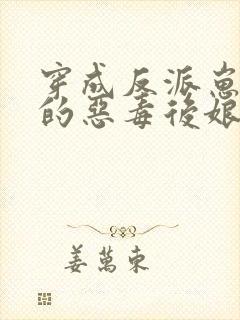 穿成反派崽
的惡毒後娘
姜萬東